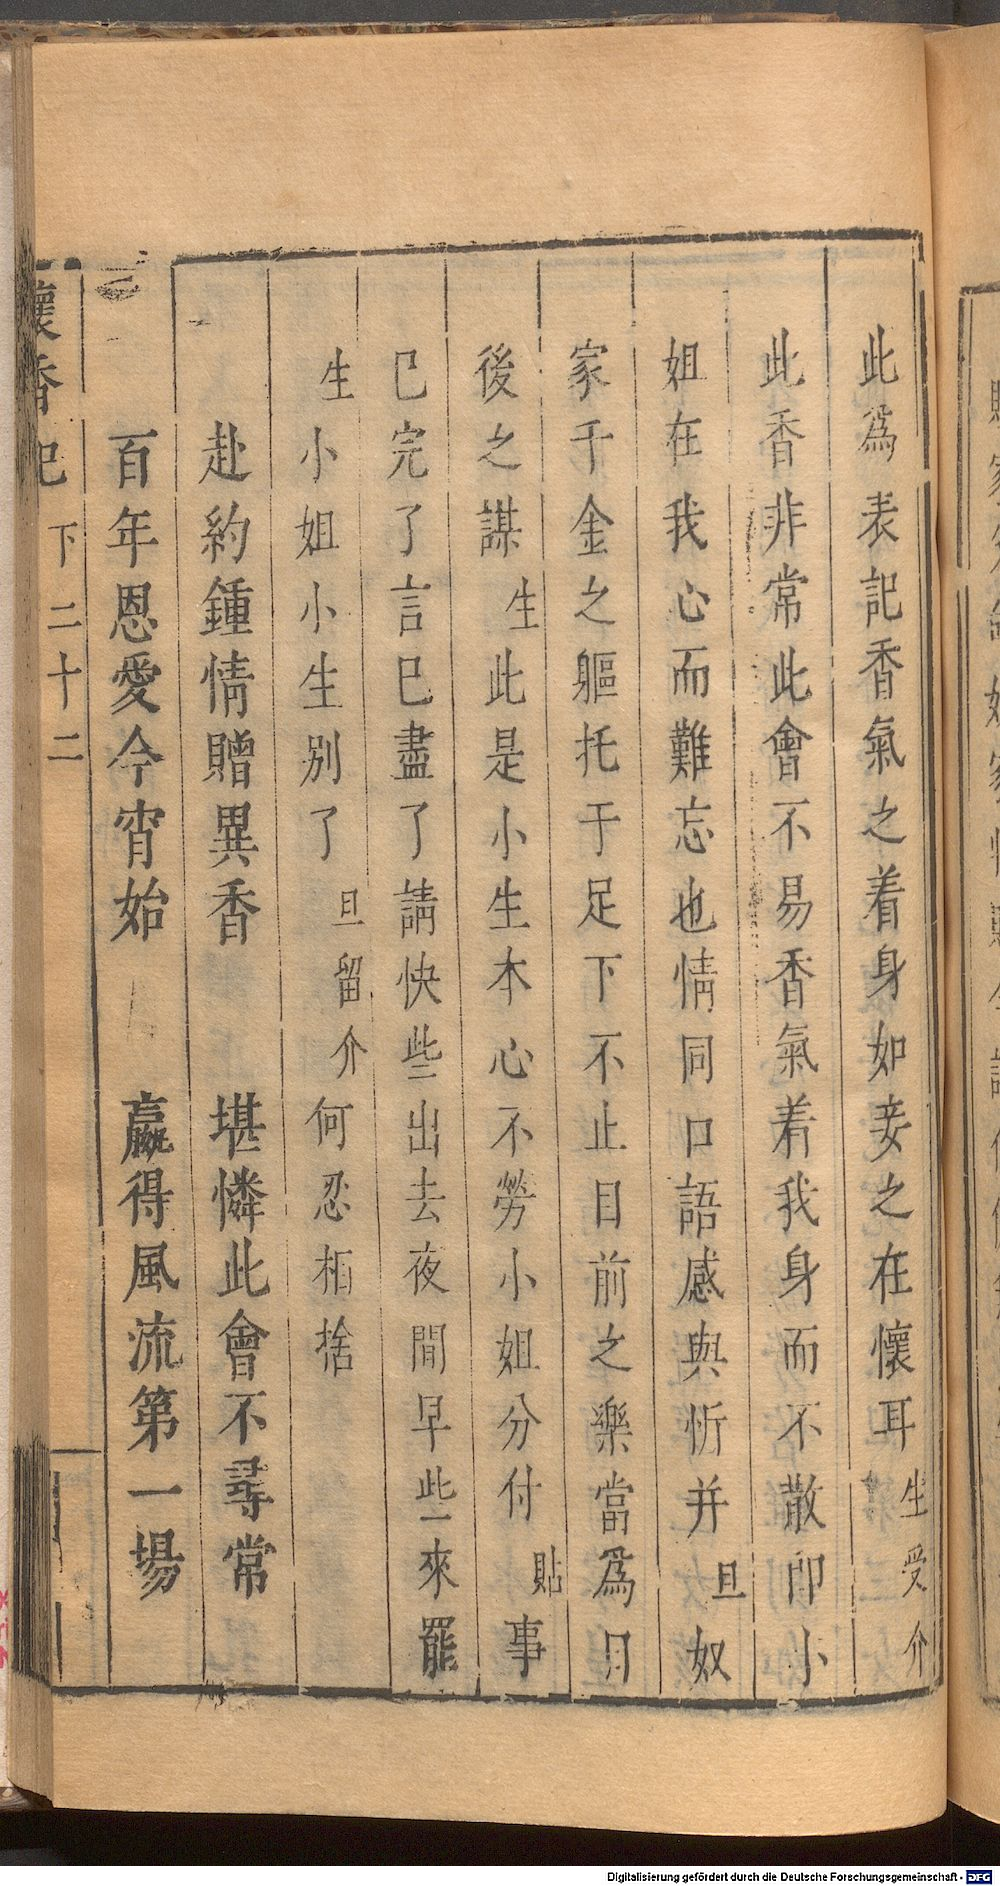 此爲表記香氣之着身如妾之在懷耳生受介
此香非常此會不易香氣着我身而不散卽小
姐在我心而難忘也情同口語感與忻并旦奴
家千金之軀托于足下不止目前之樂當爲日
後之謀生此是小生本心不勞小姐分付貼事
已完了言已盡了請快些出去夜間早些來罷
生小姐小生別了旦留介何忍相捨
赴約鍾情贈異香 堪憐此會不尋常
百年恩愛今宵始 贏得風流第一場
懷香記 下 二十二
Digitalisierung gefördert durch die Deutsche Forschungsgemeinschaft - DFG